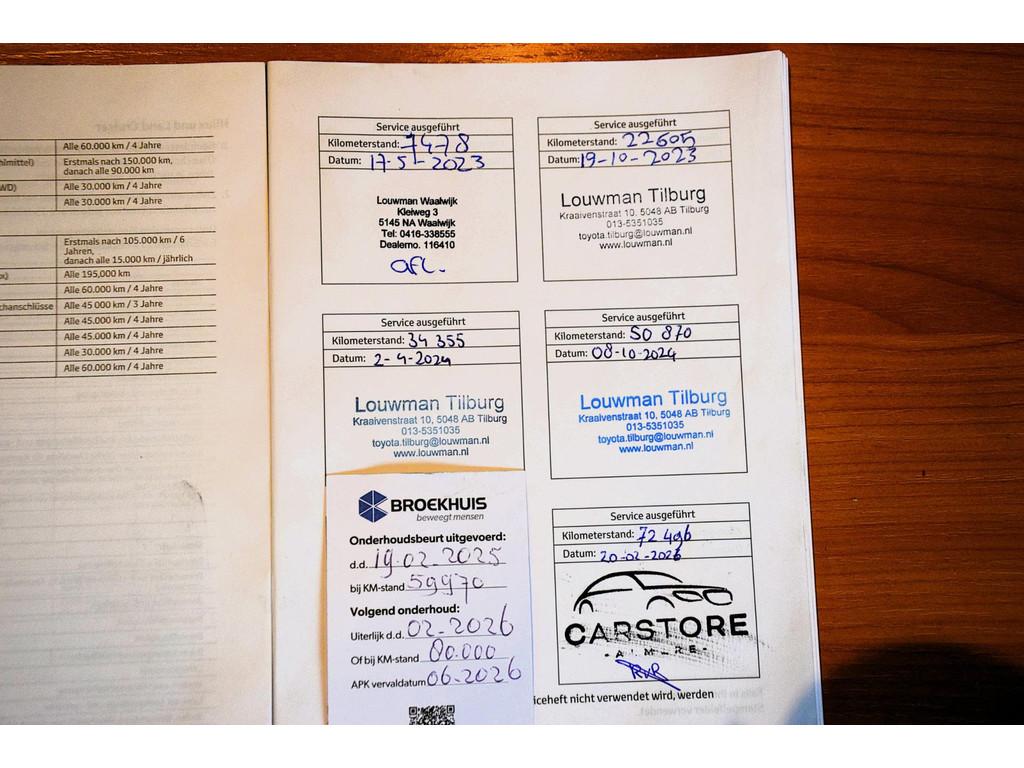 Alle 60.000 km / 4 Jahre
Erstmals nach 150.000 km,
danach alle 90.000 km
Alle 30.000 km / 4 Jahre
Alle 30.000 km / 4 Jahre
Erstmals nach 105.000 km / 6
Jahren,
danach alle 15.000 km / jährlich
Alle 195,000 km
Alle 60.000 km / 4 Jahre
chanschlüsse Alle 45 000 km / 3 Jahre
Alle 45.000 km / 4 Jahre
Alle 45.000 km / 4 Jahre
Alle 30.000 km / 4 Jahre
Alle 60.000 km / 4 Jahre
Service ausgeführt
Kilometerstand: 7478
Datum: 17-5-2023
Louwman Waalwijk
Kleiweg 3
5145 NA Waalwijk
Tel: 0416-338555
Dealerno. 116410
afl.
Service ausgeführt
Kilometerstand: 22605
Datum: 19-10-2023
Louwman Tilburg
Kraaivenstraat 10, 5048 AB Tilburg
013-5351035
toyota.tilburg@louwman.nl
www.louwman.nl
Service ausgeführt
Kilometerstand: 34 355
Datum: 2-4-2024
Louwman Tilburg
Kraaivenstraat 10, 5048 AB Tilburg
013-5351035
toyota.tilburg@louwman.nl
www.louwman.nl
Service ausgeführt
Kilometerstand: 50 870
Datum: 08-10-2024
Louwman Tilburg
Kraaivenstraat 10, 5048 AB Tilburg
013-5351035
toyota.tilburg@louwman.nl
www.louwman.nl
BROEKHUIS
beweegt mensen
Onderhoudsbeurt uitgevoerd:
d.d. 19-02-2025
bij KM-stand 59970
Volgend onderhoud:
Uiterlijk d.d. 02-2026
Of bij KM-stand 80.000
APK vervaldatum 06-2026
Service ausgeführt
Kilometerstand: 72 496
Datum: 20-02-2026
CARSTORE
-ALMERE-
iceheft nicht verwendet wird, werden